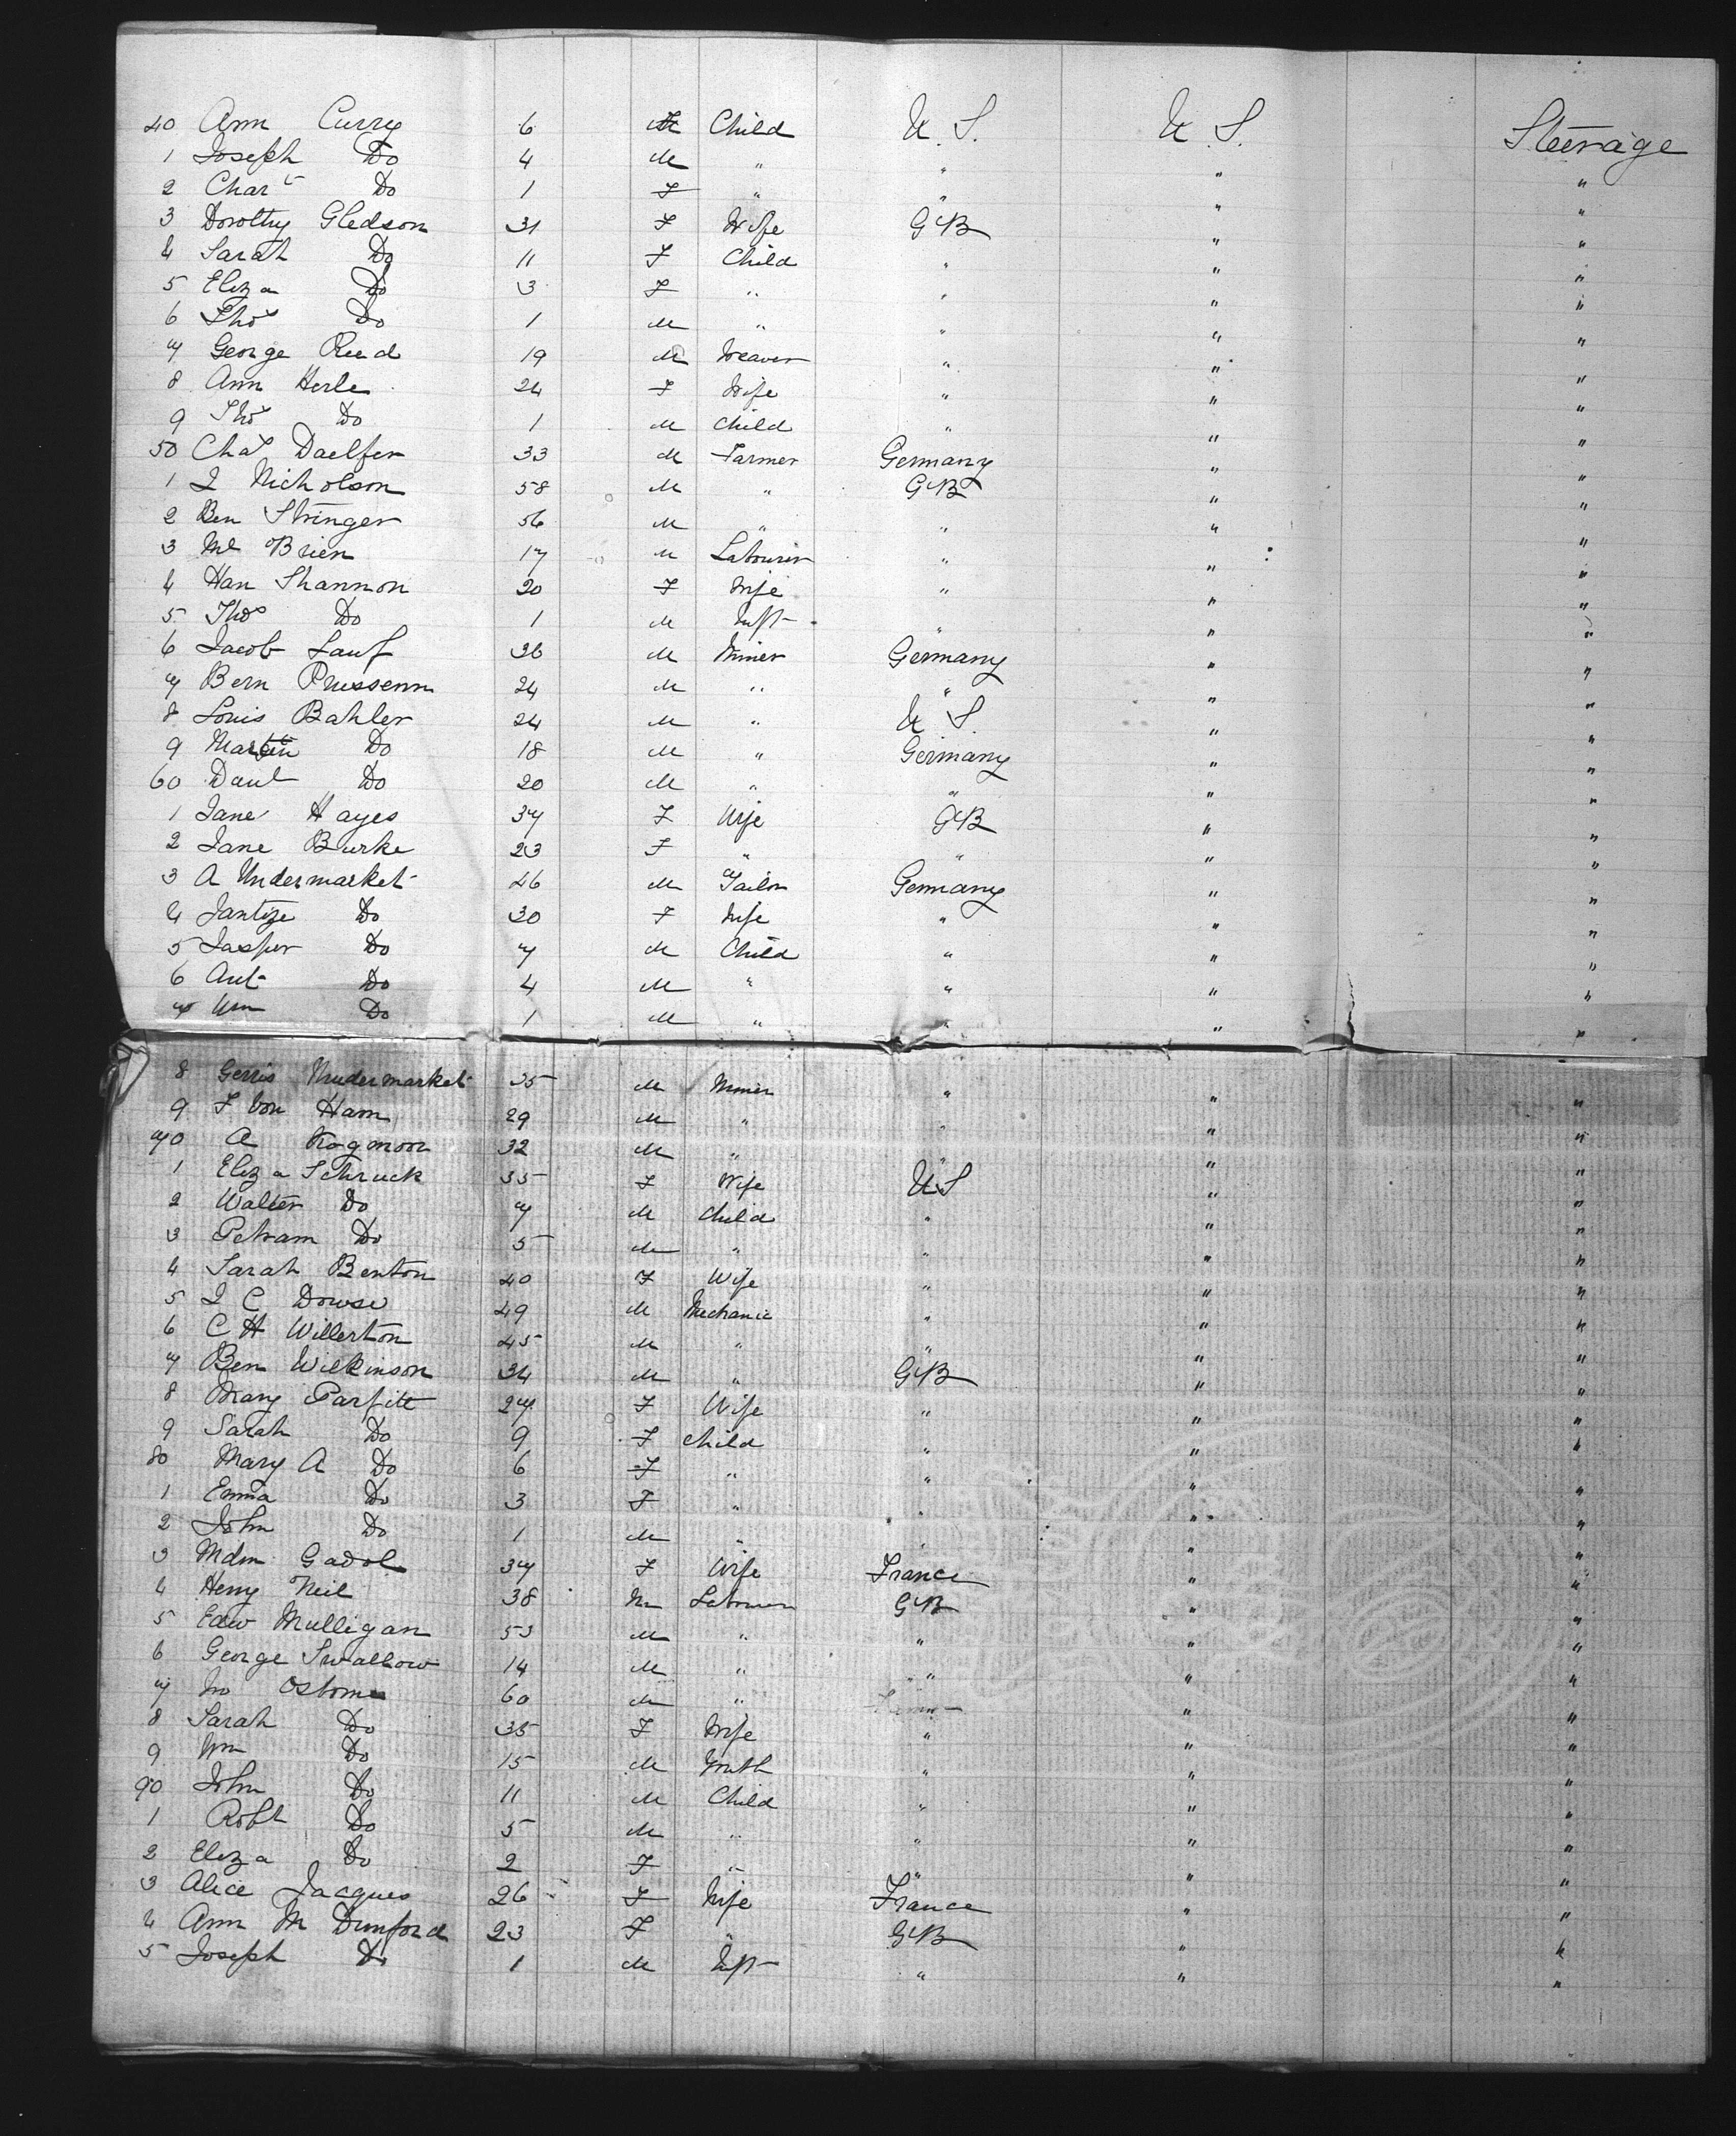 40 Ann Curry 6 F Child U.S. U.S. Steerage
1 Joseph Do 4 M " " " "
2 Chas Do 1 F " " " "
3 Dorothy Gledson 31 F Wife GB " "
4 Sarah Do 11 F Child " " "
5 Eliza Do 3 F " " " "
6 Thos Do 1 M " " " "
7 George Reed 19 M Weaver " " "
8 Ann Herle 24 F Wife " " "
9 Thos Do 1 M Child " " "
50 Chas Daelfer 33 M Farmer Germany " "
1 J Nicholson 58 M " GB " "
2 Ben Stringer 56 M " " " "
3 Ml Brien 17 M Labourer " " "
4 Han Shannon 20 F Wife " " "
5 Thos Do 1 M Inft " " "
6 Jacob Lauf 36 M Miner Germany " "
7 Bern Prussenn 24 M " " " "
8 Louis Bahler 24 M " U.S. " "
9 Martin Do 18 M " Germany " "
60 Danl Do 20 M " " " "
1 Jane Hayes 37 F Wife GB " "
2 Jane Burke 23 F " " " "
3 A Undermarket 46 M Tailor Germany " "
4 Jantize Do 30 F Wife " " "
5 Jasper Do 7 M Child " " "
6 Ant Do 4 M " " " "
7 Wm Do 1 M " " " "
8 Gerris Undermarket 35 M Miner " " "
9 F Von Ham 29 M " " " "
70 A Kogmoor 32 M " " " "
1 Eliza Schruck 35 F Wife US " "
2 Walter Do 7 M Child " " "
3 Petram Do 5 M " " " "
4 Sarah Benton 40 F Wife " " "
5 J C Dowse 49 M Mechanic " " "
6 C H Willerton 45 M " " " "
7 Ben Wilkinson 34 M " GB " "
8 Mary Parfitt 27 F Wife " " "
9 Sarah Do 9 F Child " " "
80 Mary A Do 6 F " " " "
1 Emma Do 3 F " " " "
2 John Do 1 M " " " "
3 Mdm Gadol 37 F Wife France " "
4 Henry Neil 38 M Labourer GB " "
5 Edw Mulligan 53 M " " " "
6 George Swallow 14 M " " " "
7 Jno Osborne 60 M " " "
8 Sarah Do 35 F Wife " " "
9 Wm Do 15 M Youth " " "
90 John Do 11 M Child " " "
1 Robt Do 5 M " " " "
2 Eliza Do 2 F " " " "
3 Alice Jacques 26 F Wife France " "
4 Ann M Dunford 23 F " GB " "
5 Joseph Do 1 M Inft " " "